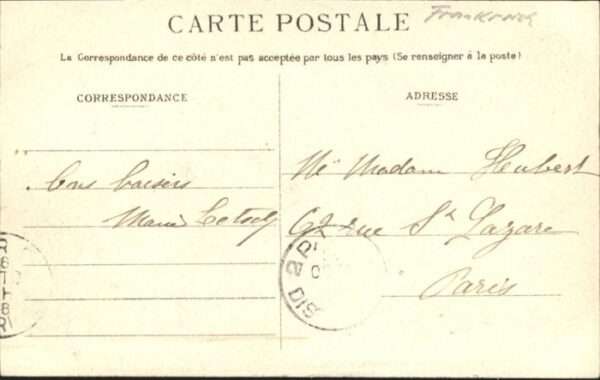 CARTE POSTALE
Frankreich
La Correspondance de ce côté n'est pas acceptée par tous les pays (Se renseigner à la poste)
CORRESPONDANCE
ADRESSE
Bons baisers
Marie
Madam Heubert
62 rue St Lazare
Paris
2
DIS